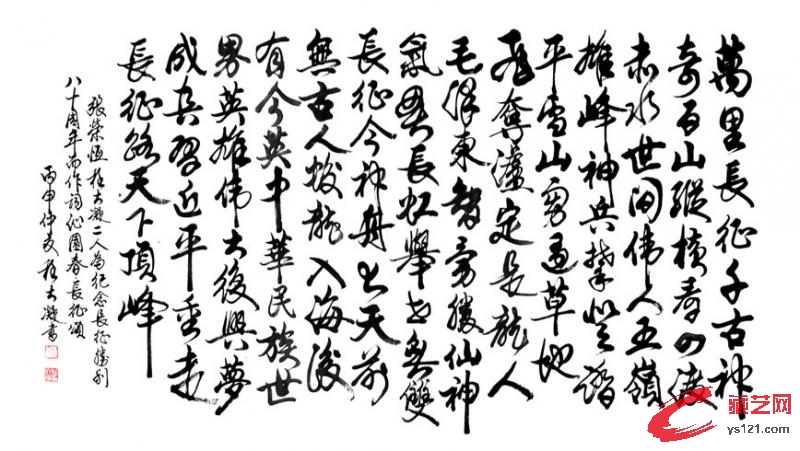 萬里長征千古神
奇百山縱橫春四渡
赤水世間偉人五嶺
雄峰神兵攀登踏
平雪山過草地
飛奪瀘定是龍人
毛澤東智勝仙神
氣長虹舉世無雙
長征今神舟上天前
無古人蛟龍入海後
有今英中華民族世
界英雄偉大復興夢
成真習近平重走
長征路天下頂峰
張榮恒程大凝二人為紀念長征勝利
八十周年而作詞沁園春長征頌
丙申仲夏程大凝書
藏艺网
ys121.com